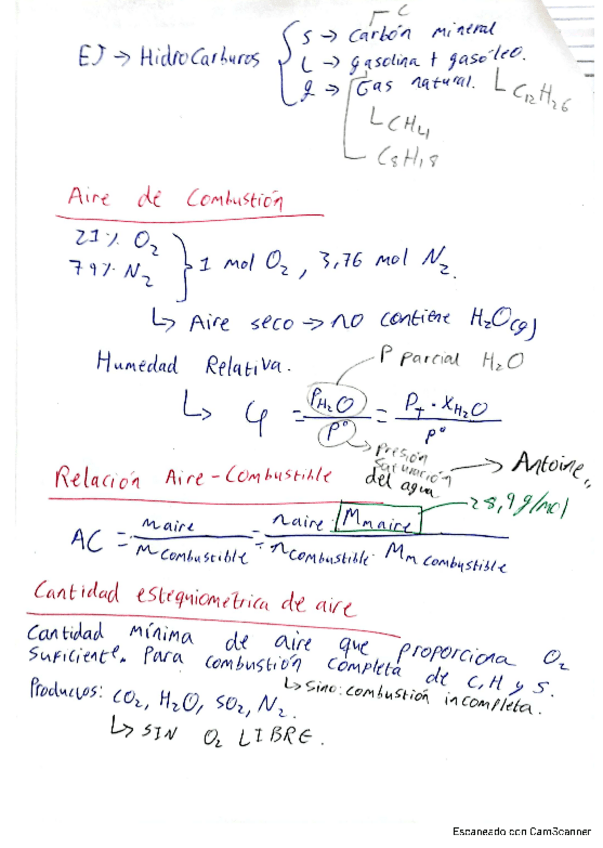 C
EJ → HidroCarburos { S → Carbón mineral
L → gasolina + gasóleo.
g → Gas natural. C12H26
CH4
C8H18
Aire de Combustión
21% O2
79% N2 } 1 mol O2, 3,76 mol N2.
↳ Aire seco → no contiene H2O(g)
Humedad Relativa. P parcial H2O
↳ φ = PH2O / P° = PT · XH2O / P°
Presión saturación del agua → Antoine
Relación Aire-Combustible
28,9 g/mol
AC = maire / mcombustible = naire · Mmaire / ncombustible · Mm combustible
Cantidad estequiometrica de aire
Cantidad mínima de aire que proporciona O2
suficiente. Para combustión completa de C, H y S.
↳ Sino: combustión incompleta.
Productos: CO2, H2O, SO2, N2.
↳ SIN O2 LIBRE.
Escaneado con CamScanner